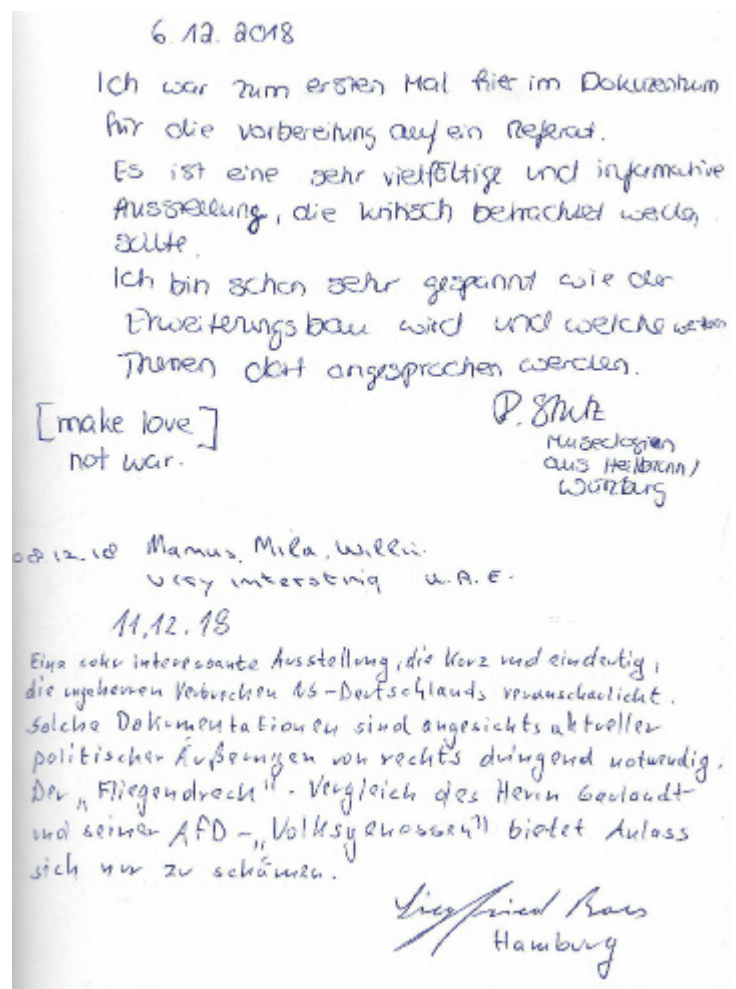 6.12.2018
Ich war zum ersten Mal hier im Dokuzentrum
für die Vorbereitung auf ein Referat.
Es ist eine sehr vielfältige und informative
Ausstellung, die kritisch betrachtet werden
sollte.
Ich bin schon sehr gespannt wie der
Erweiterungsbau wird und welche weiteren
Themen dort angesprochen werden.
[make love]
not war.
P.
Museologien
aus Heilbronn/
Würzburg
08.12.18 Mila, Willi.
very u.A.E.
11.12.18
Eine sehr interessante Ausstellung, die kurz und eindeutig,
die ungeheuren Verbrechen NS-Deutschlands veranschaulicht.
Solche Dokumentationen sind angesichts aktueller
politischer Äußerungen von rechts dringend notwendig.
Der „Fliegendreck"-Vergleich des Herrn Gaulandt
und seiner AfD-„Volksgenossen" bietet Anlass
sich nur zu schämen.
Siegfried
Hamburg